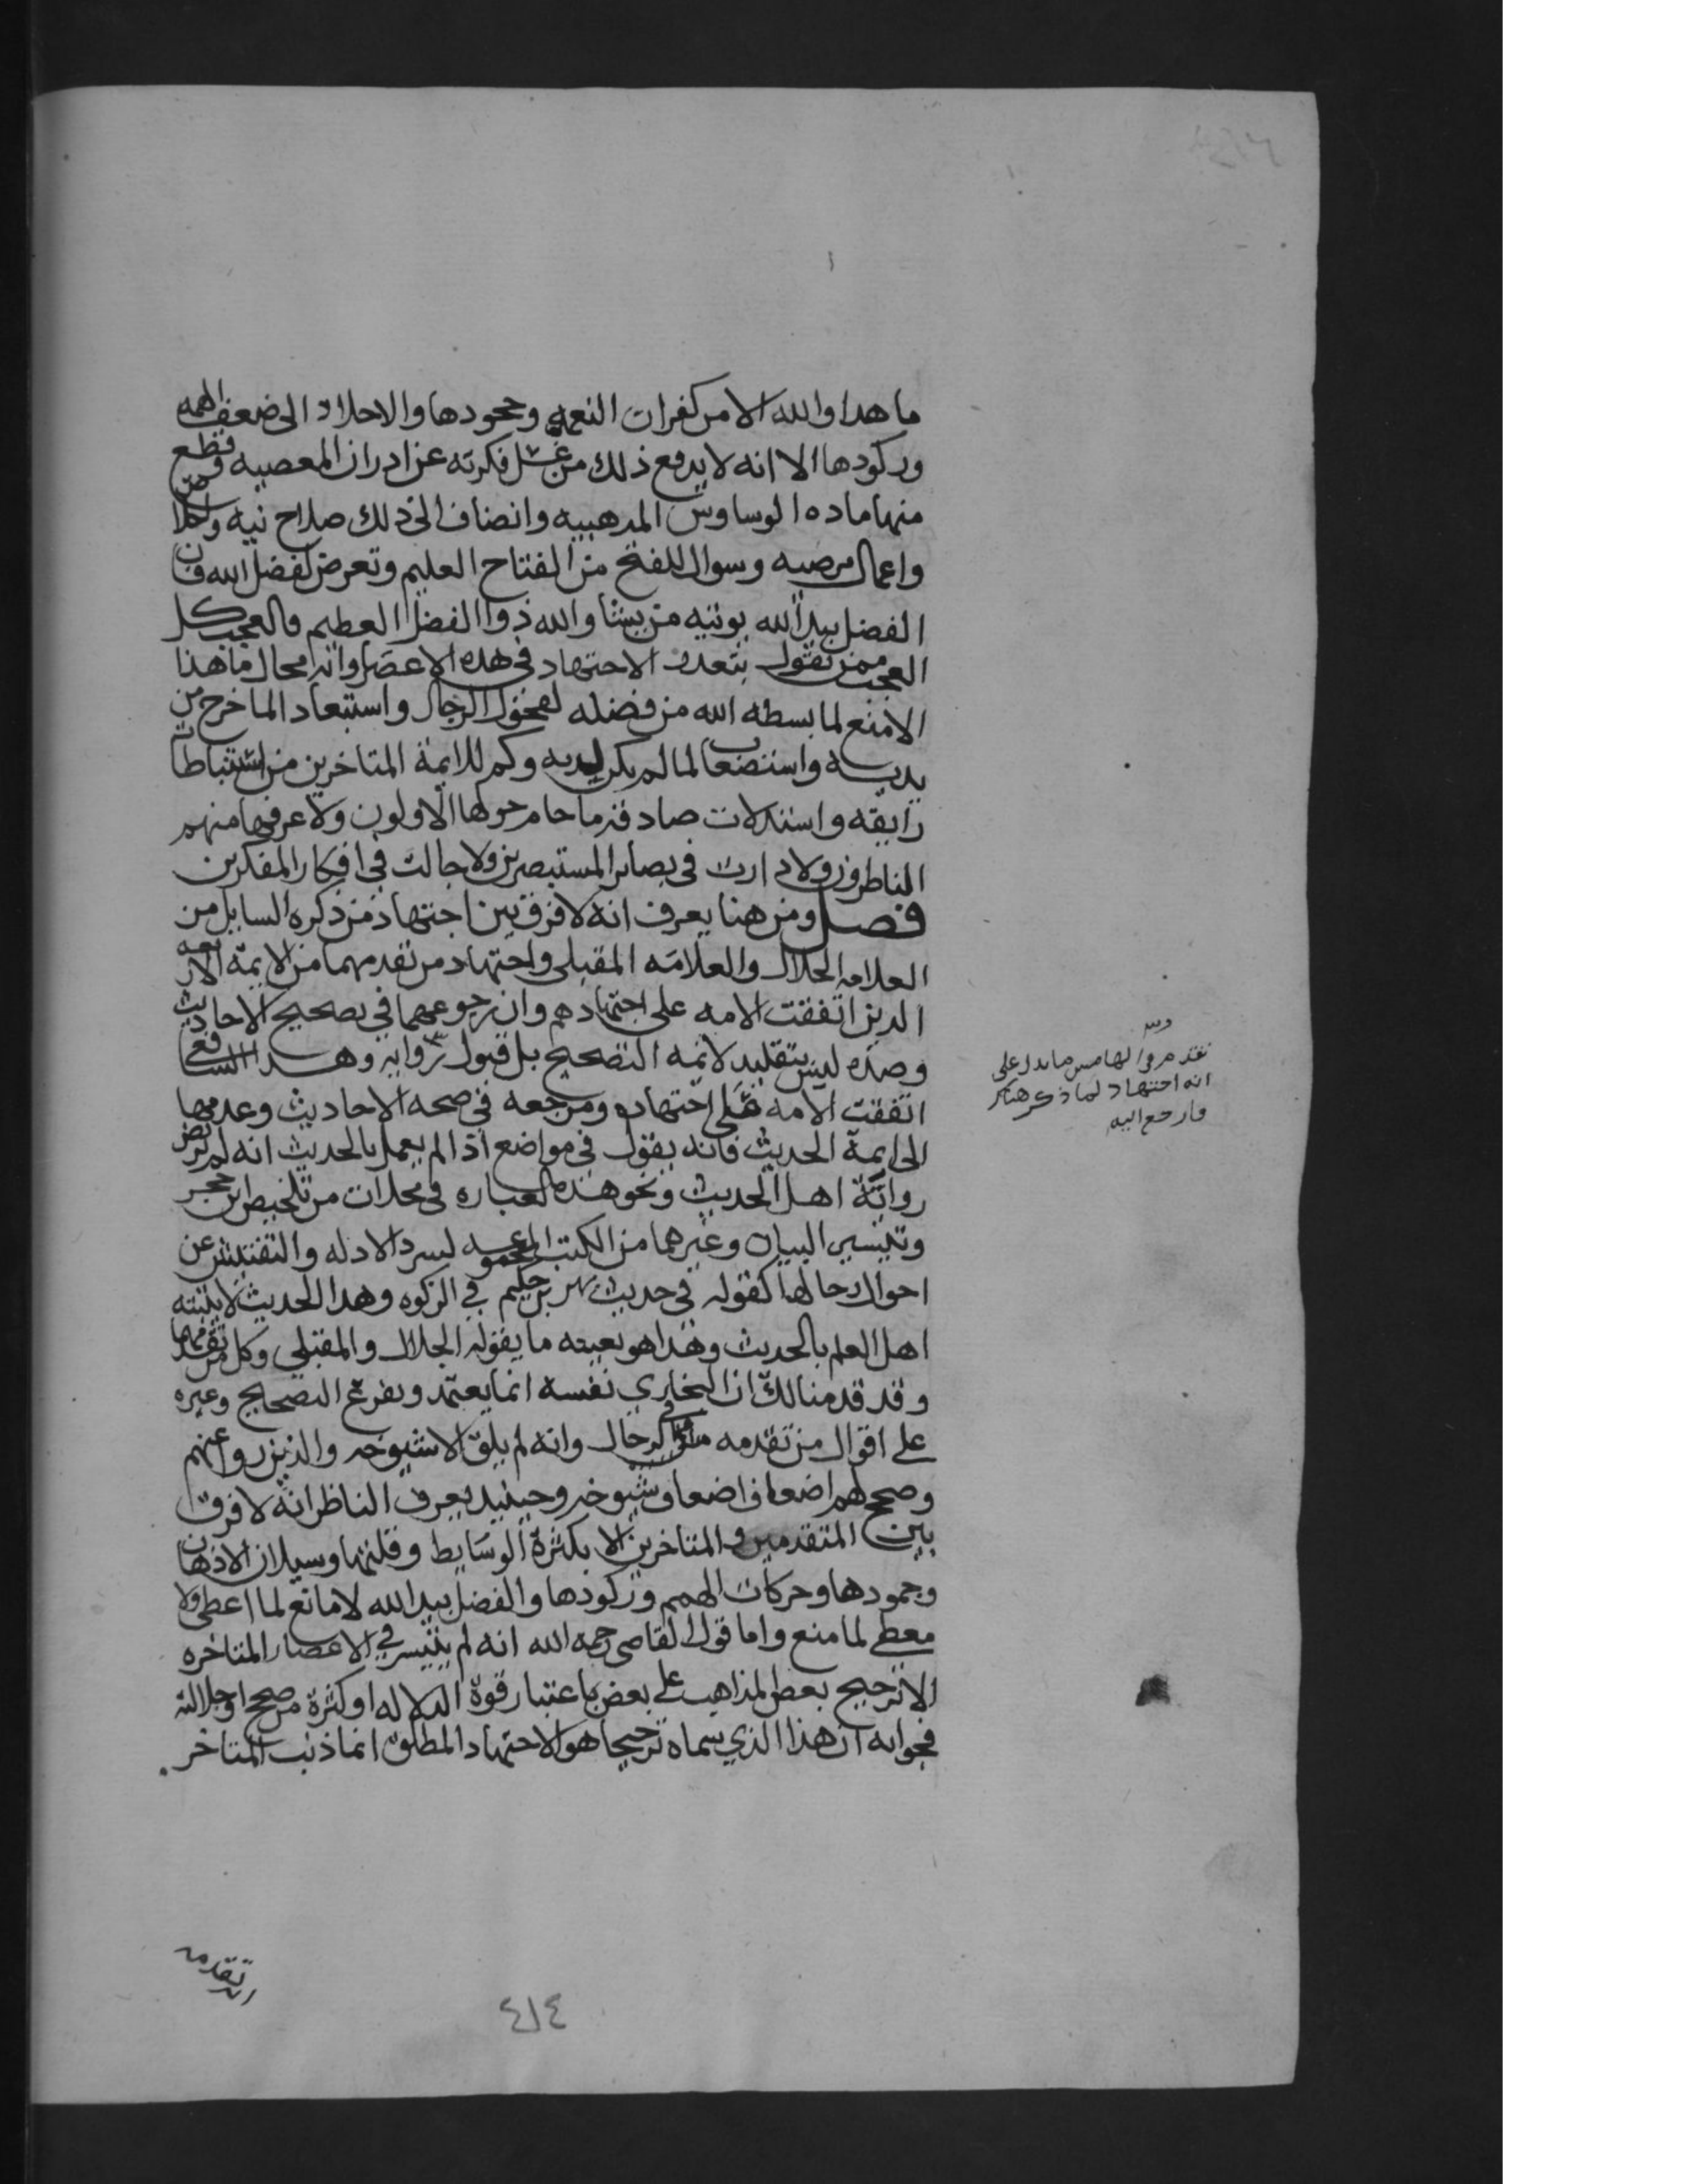 ما هدا والله الا من كفران النعمه وجحودها والاخلاد الى ضعف الهمه
وركودها الا انه لا يدفع ذلك من غسل فكرته عن ادران المعصبيه وقطع
منها ماده الوساوس المدهبيه وانضاف الى ذلك صلاح نيه
واعمال مرضيه وسوال للفتح من الفتاح العليم وتعرض لفضل الله فان
الفضل بيد الله يوتيه من يشا والله ذوا الفضل العطيم فالعجب كل
العجب ممن يقول بتعدر الاجتهاد في هده الاعصار وانه محال ما هذا
الا منع لما بسطه الله من فضله لفحول الرجال واستبعاد لما خرج من
يديه واستصعاب لما لم يكن لديه وكم للايمة المتاخرين من استنباطات
رايقه واستدلالات صادقه ما حام حولها الاولون ولا عرفها منهم
الناطرون ولا دارت في بصاير المستبصرين ولا جالت في افكار المفكرين
فصل ومن هنا يعرف انه لا فرق بين اجتهاد من ذكره السايل من
العلامه الجلال والعلامه المقبلي واجتهاد من تقدمهما من الايمه الاربعه
الدين اتفقت الامه على اجتهادهم وان رجوعهما في تصحيح الاحاديث
وضده ليس بتقليد لائمه التصحيح بل قبول روايه وهدا الشافعي
اتفقت الامه على اجتهاده ومرجعه في صحه الاحاديث وعدمها
الى ايمة الحديث فانه يقول في مواضع اذا لم يعمل بالحديث انه لم يرتض
رواته اهل الحديث ونحو هذه العباره في محلات من تلخيص ابن حجر
وتيسير البيان وغيرهما من الكتب لسرد الادله والتفتيش عن
احوال رجالها كقوله في حديث بهز بن حكيم في الزكوه وهدا الحديث لا يثبته
اهل العلم بالحديث وهذا هو بعينه ما يقوله الجلال والمقبلي وكل من تقدمهما
وقد قدمنا لك ان البخاري نفسه انما يعتمد ويفرع التصحيح وغيره
على اقوال من تقدمه في الرجال وانه لم يلق الا شيوخه والذين روا عنهم
وصحح لهم اضعاف اضعاف شيوخه وحينيد يعرف الناظر انه لا فرق
بين المتقدمين والمتاخرين الا بكثرة الوسايط وقلتها وسيلان الاذهان
وجمودها وحركات الهمم وركودها والفضل بيد الله لا مانع لما اعطى ولا
معطي لما منع واما قول القاصي رحمه الله انه لم يتيسر في الاعصار المتاخره
الا ترجيح بعض المذاهب على بعض باعتبار قوة الدلاله او كثرة من صحح او جلالته
فجوابه ان هذا الذي سماه ترجيحا هو الاجتهاد المطلق انما ذنب المتاخر
تقدم في الهامش ما يدل على
انه اجتهاد لما ذكر هناك
فارجع اليه
تقدمه
٤١٤